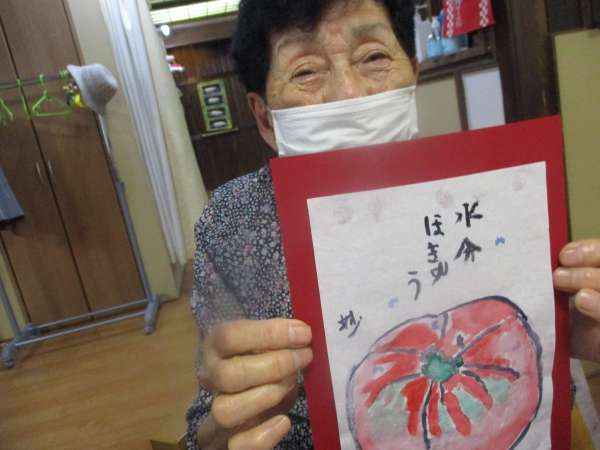 水分
ほきゅう
妙